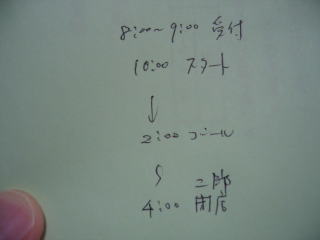 8:00~9:00 受付
10:00 スタート
↓
2:00 ゴール
〜
4:00 閉店